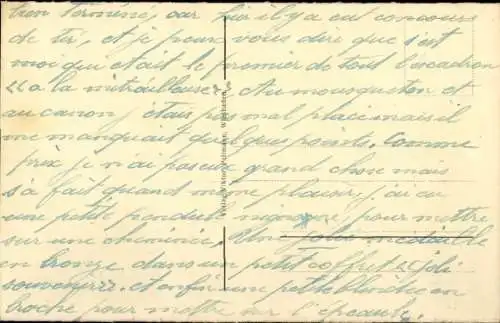 bien terminé, car hier il y a eu concours
de tir, et je peux vous dire que s'est
moi qui était le premier de tout l'escadron
<< a la mitrailleuse >> Au mousqueton et
au canon j'étais pas mal placé mais il
me manquait quelques points. Comme
prix je n'ai pas eu grand chose mais
s'a fait quand même plaisir, j'ai eu
une petite pendule mignonne pour mettre
sur une cheminée. Une jolie médaille
en bronze dans un petit coffret << joli
souvenir >>. et enfin une petite
broche pour mettre sur l'épaule.